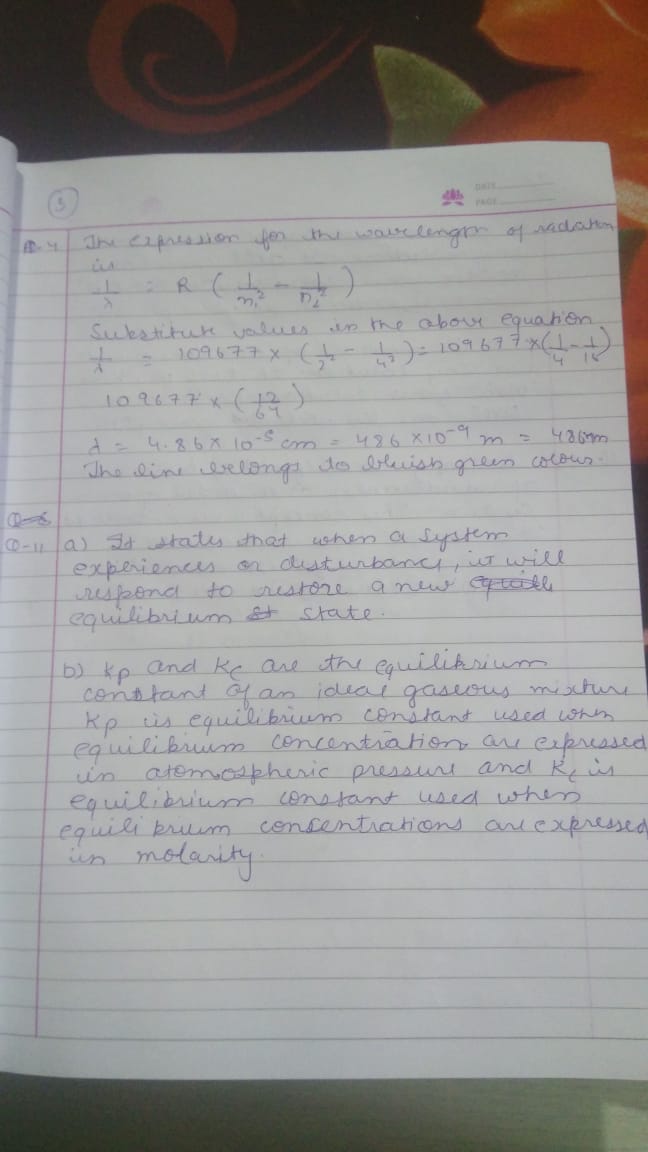 3
DATE
PAGE
Q-4 The expression for the wavelength of radiation
is
1/λ = R ( 1/n₁² - 1/n₂² )
Substitute values in the above equation
1/λ = 109677 × ( 1/2² - 1/4² ) = 109677 × ( 1/4 - 1/16 )
109677 × ( 12/64 )
λ = 4.86 × 10⁻⁵ cm = 486 × 10⁻⁹ m = 486nm
The line belongs to bluish green colour.
Q-11 a) It states that when a system
experiences or disturbance, it will
respond to restore a new
equilibrium state.
b) Kp and Kc are the equilibrium
constant of an ideal gaseous mixture
Kp is equilibrium constant used when
equilibrium concentration are expressed
in atomospheric pressure and Kc is
equilibrium constant used when
equilibrium consentrations are expressed
in molarity.